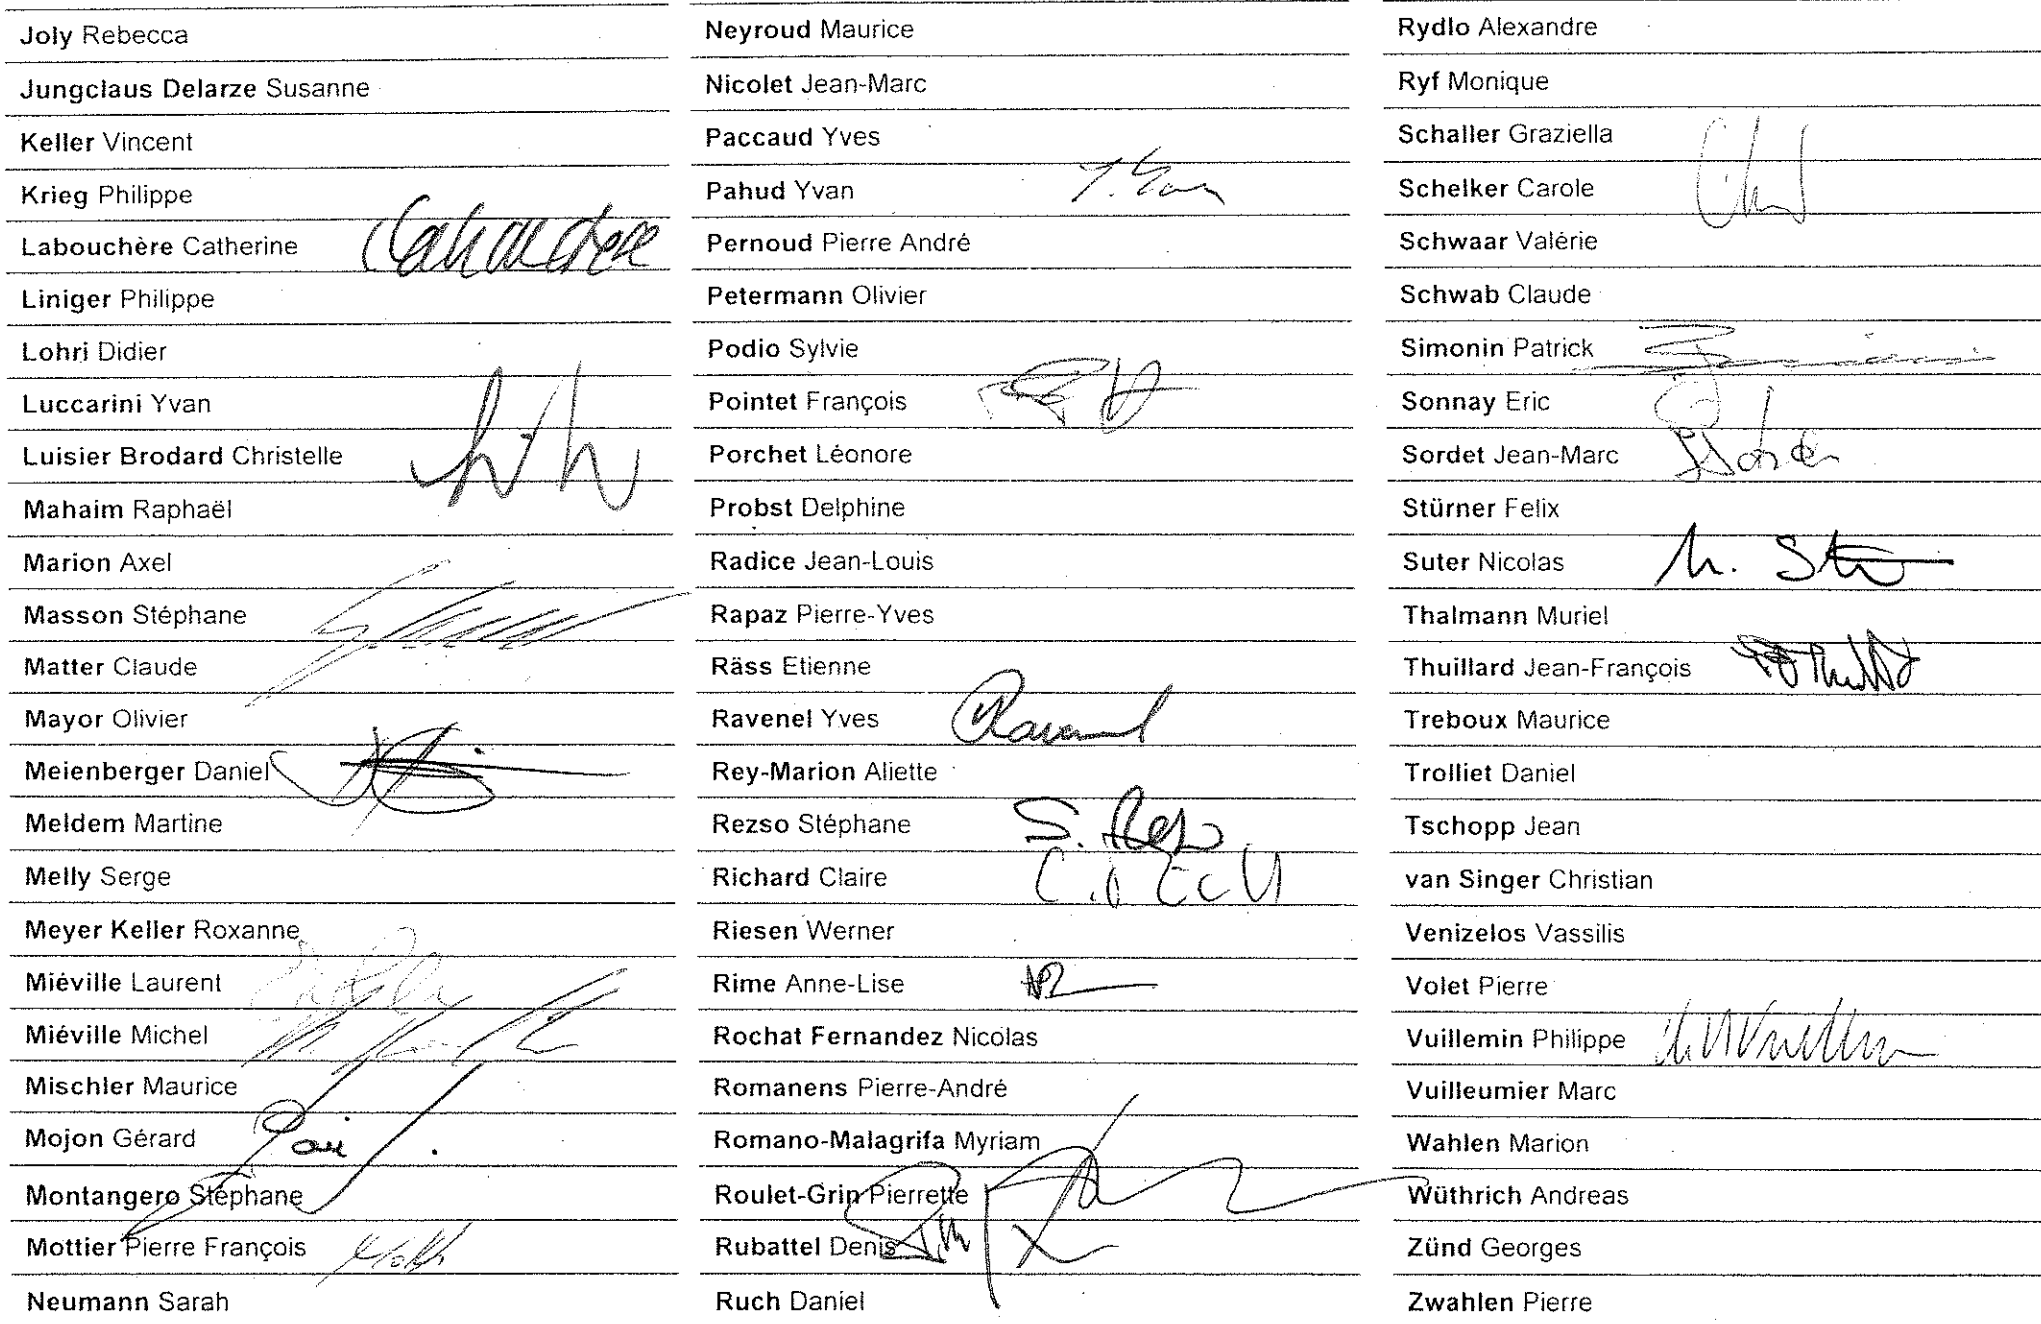 Joly Rebecca
Jungclaus Delarze Susanne
Keller Vincent
Krieg Philippe
Labouchère Catherine
Liniger Philippe
Lohri Didier
Luccarini Yvan
Luisier Brodard Christelle
Mahaim Raphaël
Marion Axel
Masson Stéphane
Matter Claude
Mayor Olivier
Meienberger Daniel
Meldem Martine
Melly Serge
Meyer Keller Roxanne
Miéville Laurent
Miéville Michel
Mischler Maurice
Mojon Gérard
Montangero Stéphane
Mottier Pierre François
Neumann Sarah
Neyroud Maurice
Nicolet Jean-Marc
Paccaud Yves
Pahud Yvan
Pernoud Pierre André
Petermann Olivier
Podio Sylvie
Pointet François
Porchet Léonore
Probst Delphine
Radice Jean-Louis
Rapaz Pierre-Yves
Räss Etienne
Ravenel Yves Ravenel
Rey-Marion Aliette
Rezso Stéphane S. Rezso
Richard Claire
Riesen Werner
Rime Anne-Lise
Rochat Fernandez Nicolas
Romanens Pierre-André
Romano-Malagrifa Myriam
Roulet-Grin Pierrette
Rubattel Denis
Ruch Daniel
Rydlo Alexandre
Ryf Monique
Schaller Graziella
Schelker Carole
Schwaar Valérie
Schwab Claude
Simonin Patrick
Sonnay Eric
Sordet Jean-Marc
Stürner Felix
Suter Nicolas
Thalmann Muriel
Thuillard Jean-François
Treboux Maurice
Trolliet Daniel
Tschopp Jean
van Singer Christian
Venizelos Vassilis
Volet Pierre
Vuillemin Philippe
Vuilleumier Marc
Wahlen Marion
Wüthrich Andreas
Zünd Georges
Zwahlen Pierre